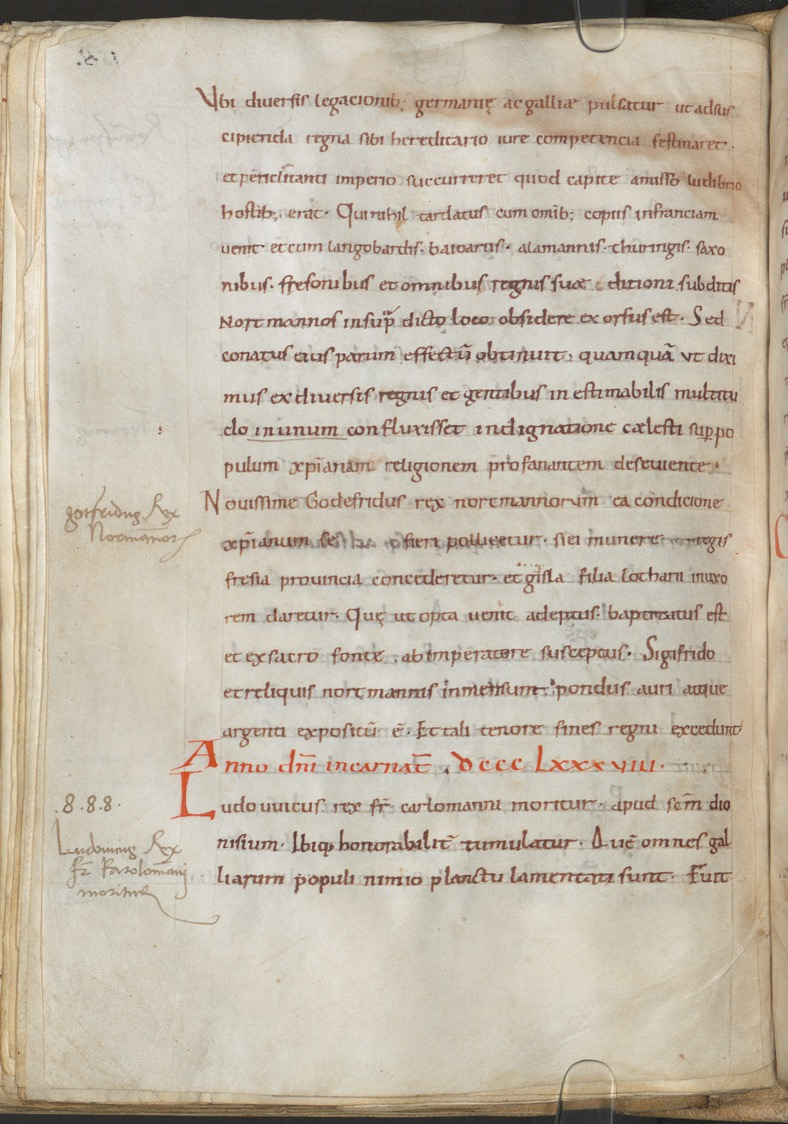 Vbi diuersis legacionib; germanię ac galliæ pulsatur ut ad sus
cipienda regna sibi hereditario iure competencia festinaret.
et periclitanti imperio succurreret quod capite amisso ludibrio
hostib; erat. Qui nihil tardatus cum omib; copiis in franciam
uenit et cum langobardis. baioariis. alamannis. thuringis. saxo
nibus. fresonibus et omnibus regnis suæ ditioni subditis
Nortmannos in sup̄ dicto loco obsidere exorsus est. Sed
conatus eius parum effectū obtinuit. quamquā ut dixi
mus ex diuersis regnis et gentibus inestimabilis multitu
do in unum confluxisset indignatione cælesti sup̄ po
pulum xp̄ianam religionem profanantem deseuiente.
Nouissime Godefridus rex nortmannorum ea condicione
xp̄ianum se fieri polliceretur. si ei munere regis
fresia prouincia concederetur. et gisla filia lotharii in uxo
rem daretur. Quę ut opta uenit adeptus. baptizatus est
et ex sacro fonte ab imperatore susceptus. Sigifrido
et reliquis nortmannis inmensum pondus auri atque
argenti expositū ē. Et tali tenore fines regni excedunt
gotfridus Rex
Normannor
Anno dn̄i incarnat̄. DCCC LXXXVIII.
Ludouuicus rex fr̄ carlomanni moritur. apud sc̄m dio
nisium. Ibiq; honorabilit̄ tumulatur. Quē omnes gal
liarum populi nimio planctu lamentati sunt. Fuit
.8.8.8.
Ludouicus Rex
fr̄ Karolomanj
moritur